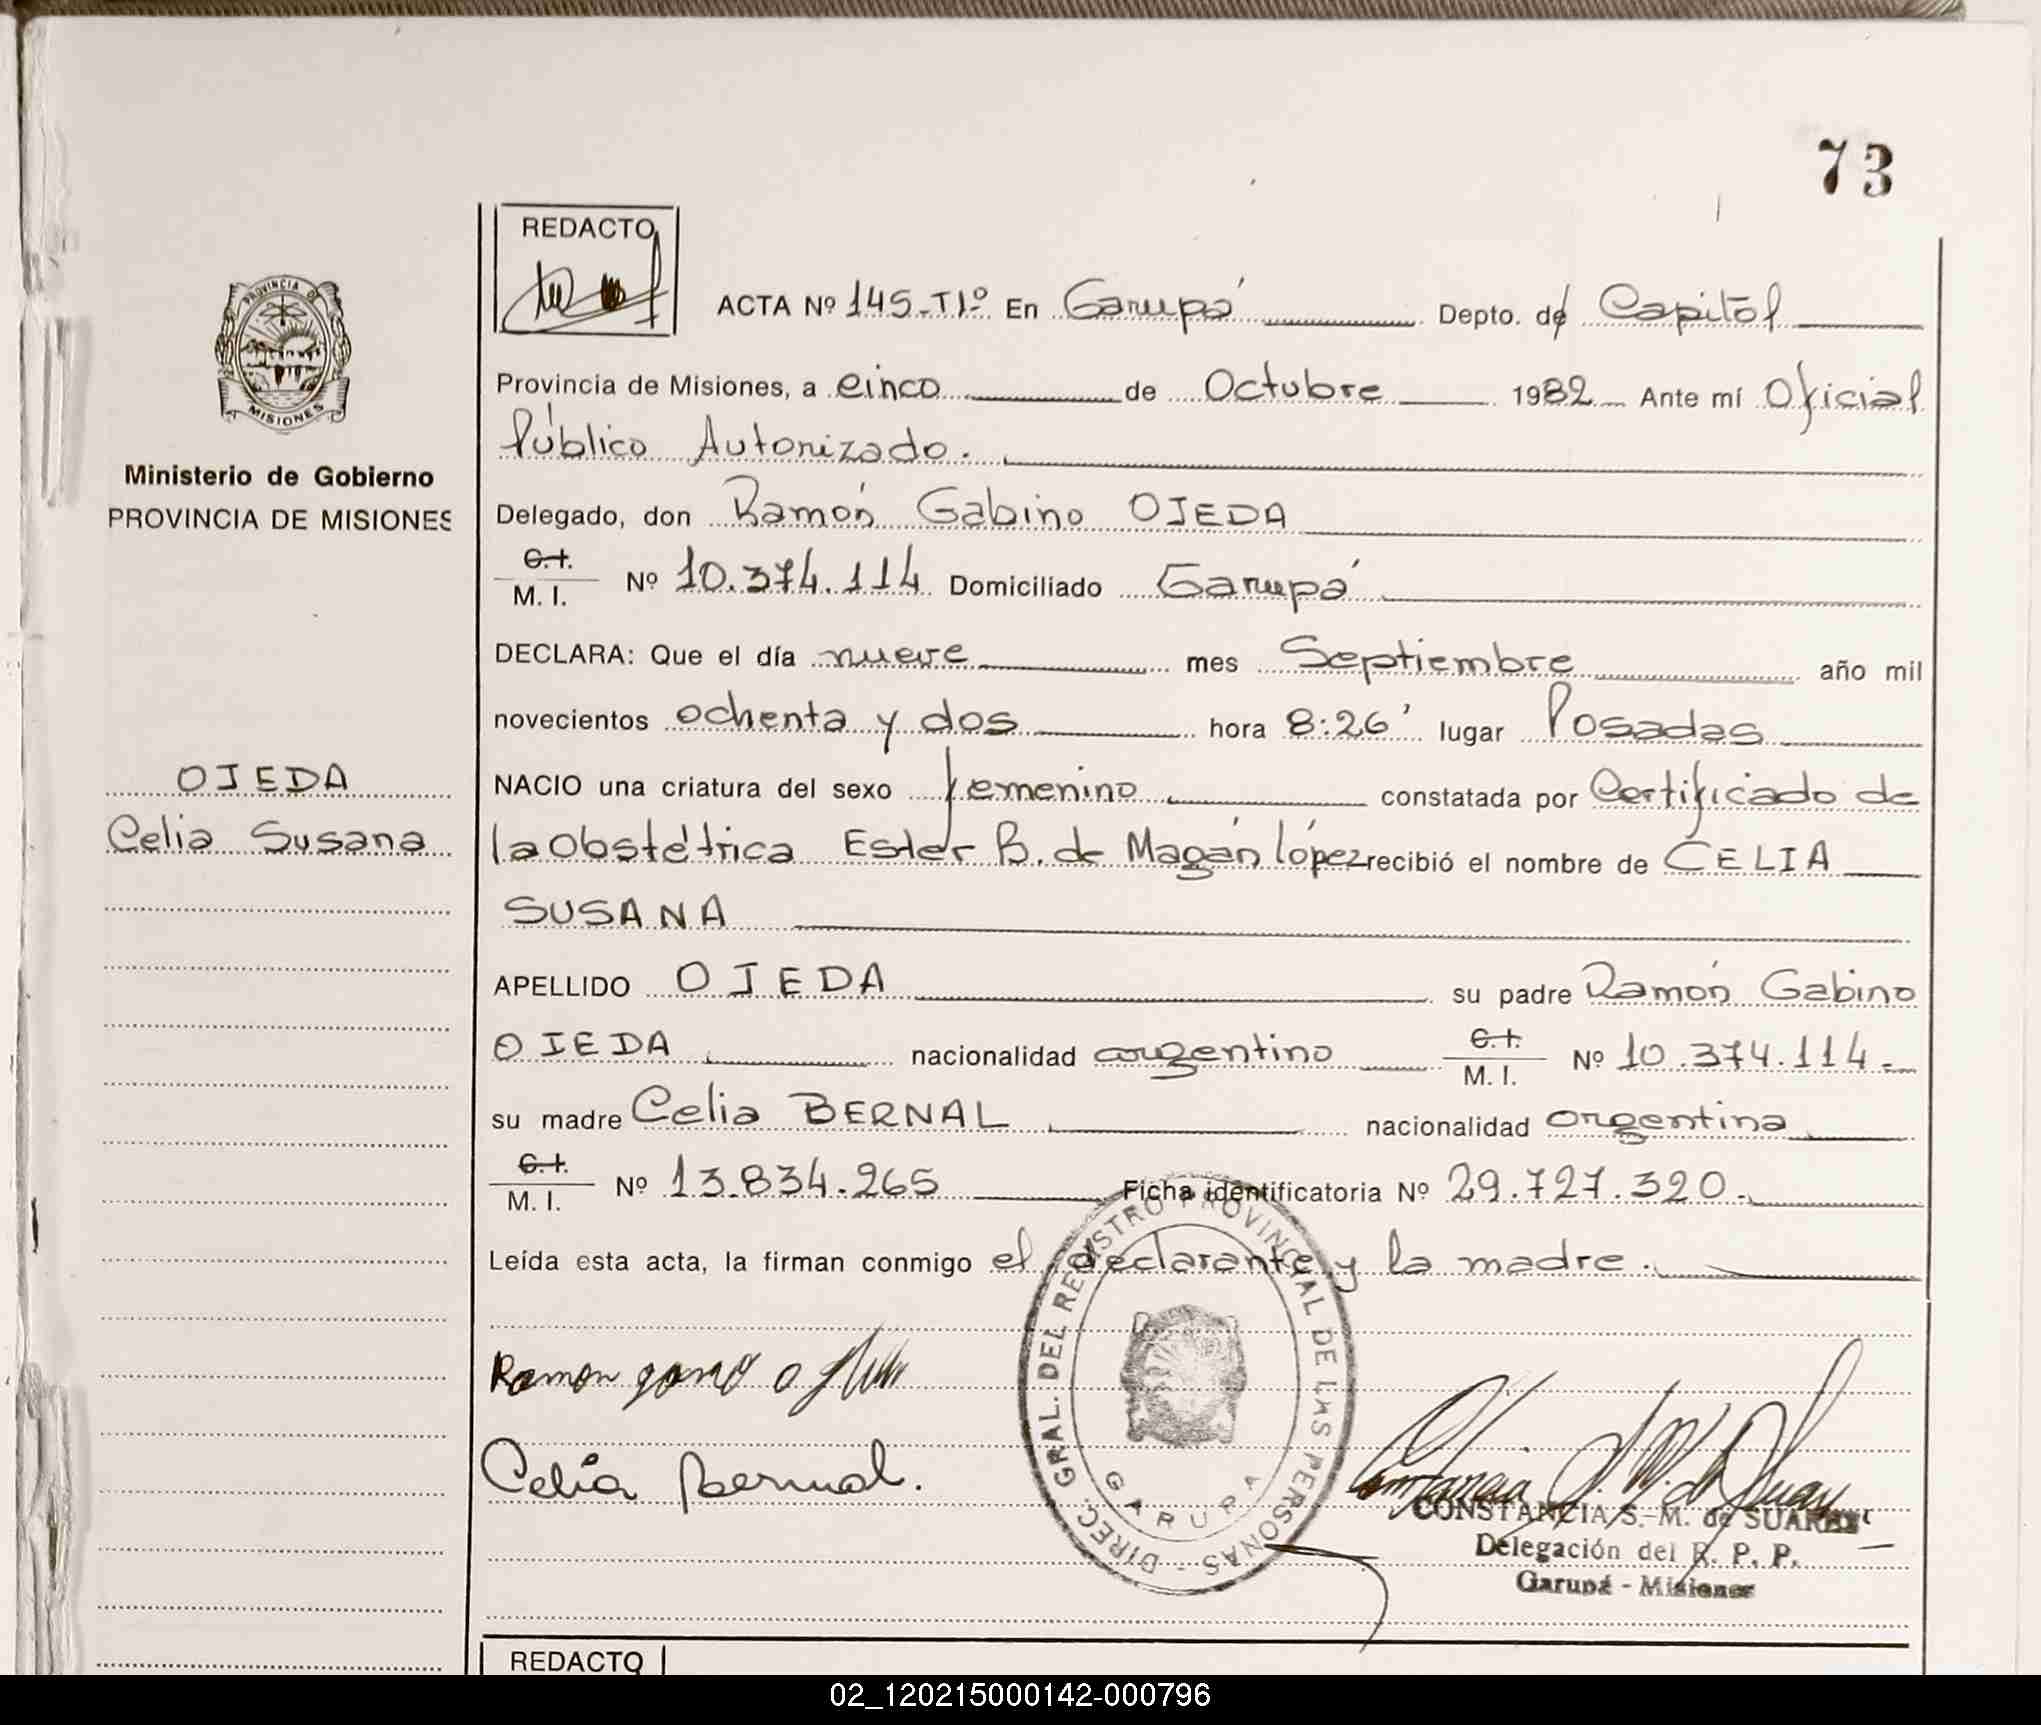 73
REDACTO
PROVINCIA DE
MISIONES
ACTA Nº 145-T1º En Garupá Depto. de Capital
Provincia de Misiones, a cinco de Octubre 1982 Ante mí Oficial
Público Autorizado.
Ministerio de Gobierno
PROVINCIA DE MISIONES
Delegado, don Ramón Gabino OJEDA
C.I.
M. I. Nº 10.374.114 Domiciliado Garupá
DECLARA: Que el día nueve mes Septiembre año mil
novecientos ochenta y dos hora 8:26' lugar Posadas
OJEDA
Celia Susana
NACIO una criatura del sexo femenino constatada por Certificado de
la Obstétrica Ester B. de Magán López recibió el nombre de CELIA
SUSANA
APELLIDO OJEDA su padre Ramón Gabino
OJEDA nacionalidad argentino C.I. M. I. Nº 10.374.114.-
su madre Celia BERNAL nacionalidad argentina
C.I.
M. I. Nº 13.834.265 Ficha identificatoria Nº 29.727.320.-
Leída esta acta, la firman conmigo el declarante y la madre.
Ramon
Celia Bernal.
DIREC. GRAL. DEL REGISTRO PROVINCIAL DE LAS PERSONAS -
GARUPA
CONSTANCIA S. M. de SUAREZ
Delegación del R. P. P.
Garupá - Misiones
REDACTO
02_120215000142-000796